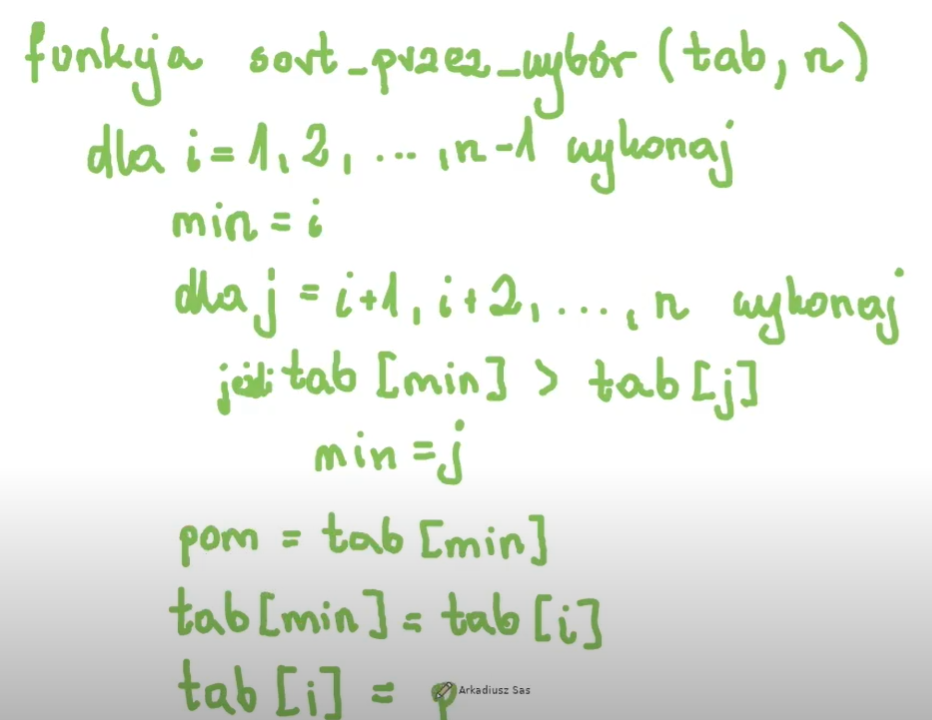 funkcja sort_przez_wybór (tab, n)
dla i = 1, 2, ..., n-1 wykonaj
min = i
dla j = i+1, i+2, ..., n wykonaj
jeśli tab [min] > tab [j]
min = j
pom = tab [min]
tab [min] = tab [i]
tab [i] = p
Arkadiusz Sas